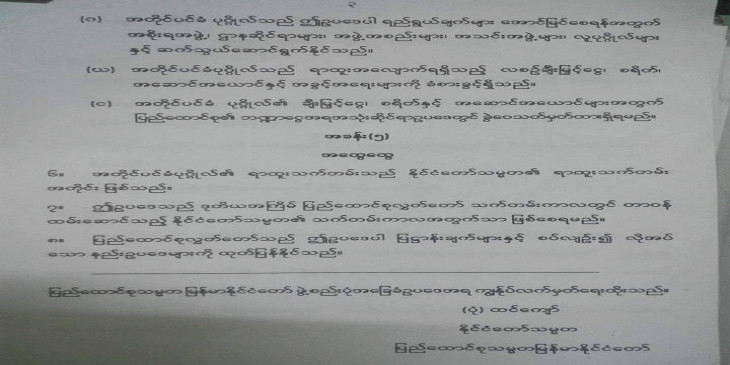 ၃
(ဂ) အတိုင်ပင်ခံ ပုဂ္ဂိုလ်သည် ဤဥပဒေပါ ရည်ရွယ်ချက်များ အောင်မြင်စေရန်အတွက်
အစိုးရအဖွဲ့၊ ဌာနဆိုင်ရာများ၊ အဖွဲ့အစည်းများ၊ အသင်းအဖွဲ့များ၊ လူပုဂ္ဂိုလ်များ
နှင့် ဆက်သွယ်ဆောင်ရွက်နိုင်သည်။
(ဃ) အတိုင်ပင်ခံပုဂ္ဂိုလ်သည် ရာထူးအလျောက်ရရှိသည့် လစဉ်ချီးမြှင့်ငွေ၊ စရိတ်၊
အဆောင်အယောင်နှင့် အခွင့်အရေးများကို ခံစားခွင့်ရှိသည်။
(င) အတိုင်ပင်ခံ ပုဂ္ဂိုလ်၏ ချီးမြှင့်ငွေ၊ စရိတ်နှင့် အဆောင်အယောင်များအတွက်
ပြည်ထောင်စု၏ ဘဏ္ဍာငွေအရအသုံးဆိုင်ရာဥပဒေတွင် ခွဲဝေသတ်မှတ်ထားရှိရမည်။
အခန်း (၅)
အထွေထွေ
၆။ အတိုင်ပင်ခံပုဂ္ဂိုလ်၏ ရာထူးသက်တမ်းသည် နိုင်ငံတော်သမ္မတ၏ ရာထူးသက်တမ်း
အတိုင်း ဖြစ်သည်။
၇။ ဤဥပဒေသည် ဒုတိယအကြိမ် ပြည်ထောင်စုလွှတ်တော် သက်တမ်းကာလတွင် တာဝန်
ထမ်းဆောင်သည့် နိုင်ငံတော်သမ္မတ၏ သက်တမ်းကာလအတွက်သာ ဖြစ်စေရမည်။
၈။ ပြည်ထောင်စုလွှတ်တော်သည် ဤဥပဒေပါ ပြဋ္ဌာန်းချက်များနှင့် စပ်လျဉ်း၍ လိုအပ်
သော နည်းဥပဒေများကို ထုတ်ပြန်နိုင်သည်။
ပြည်ထောင်စုသမ္မတ မြန်မာနိုင်ငံတော် ဖွဲ့စည်းပုံအခြေခံဥပဒေအရ ကျွန်ုပ်လက်မှတ်ရေးထိုးသည်။
(ပုံ) ထင်ကျော်
နိုင်ငံတော်သမ္မတ
ပြည်ထောင်စုသမ္မတမြန်မာနိုင်ငံတော်